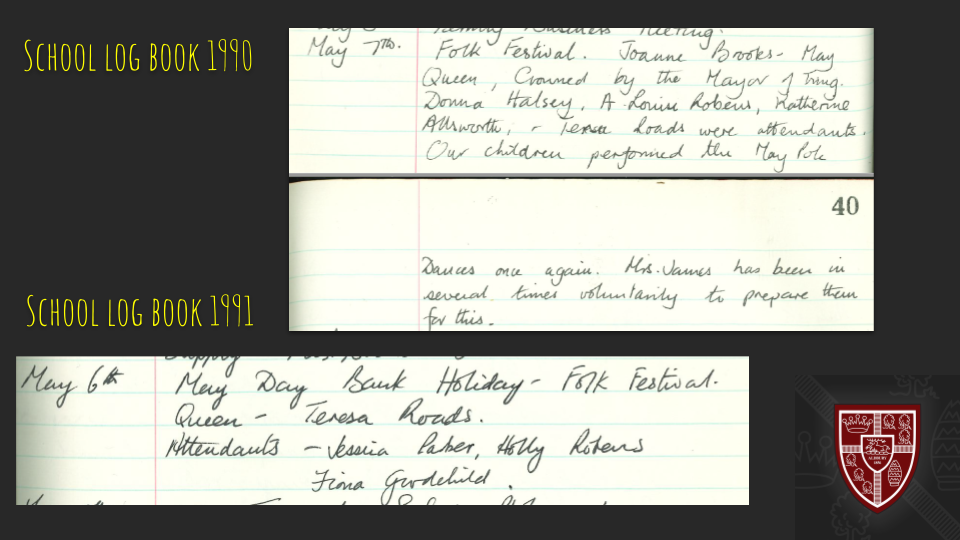 SCHOOL LOG BOOK 1990
Family Business Meeting.
May 7th. Folk Festival. Joanne Brooks - May
Queen, Crowned by the Mayor of Tring.
Donna Halsey, A. Louise Robens, Katherine
Allsworth, - Teresa Roads were attendants.
Our children performed the May Pole
40
Dances once again. Mrs. James has been in
several times voluntarily to prepare them
for this.
SCHOOL LOG BOOK 1991
May 6th May Day Bank Holiday - Folk Festival.
Queen - Teresa Roads.
Attendants - Jessica Parker, Holly Robens
Fiona Goodchild.
ALDBURY